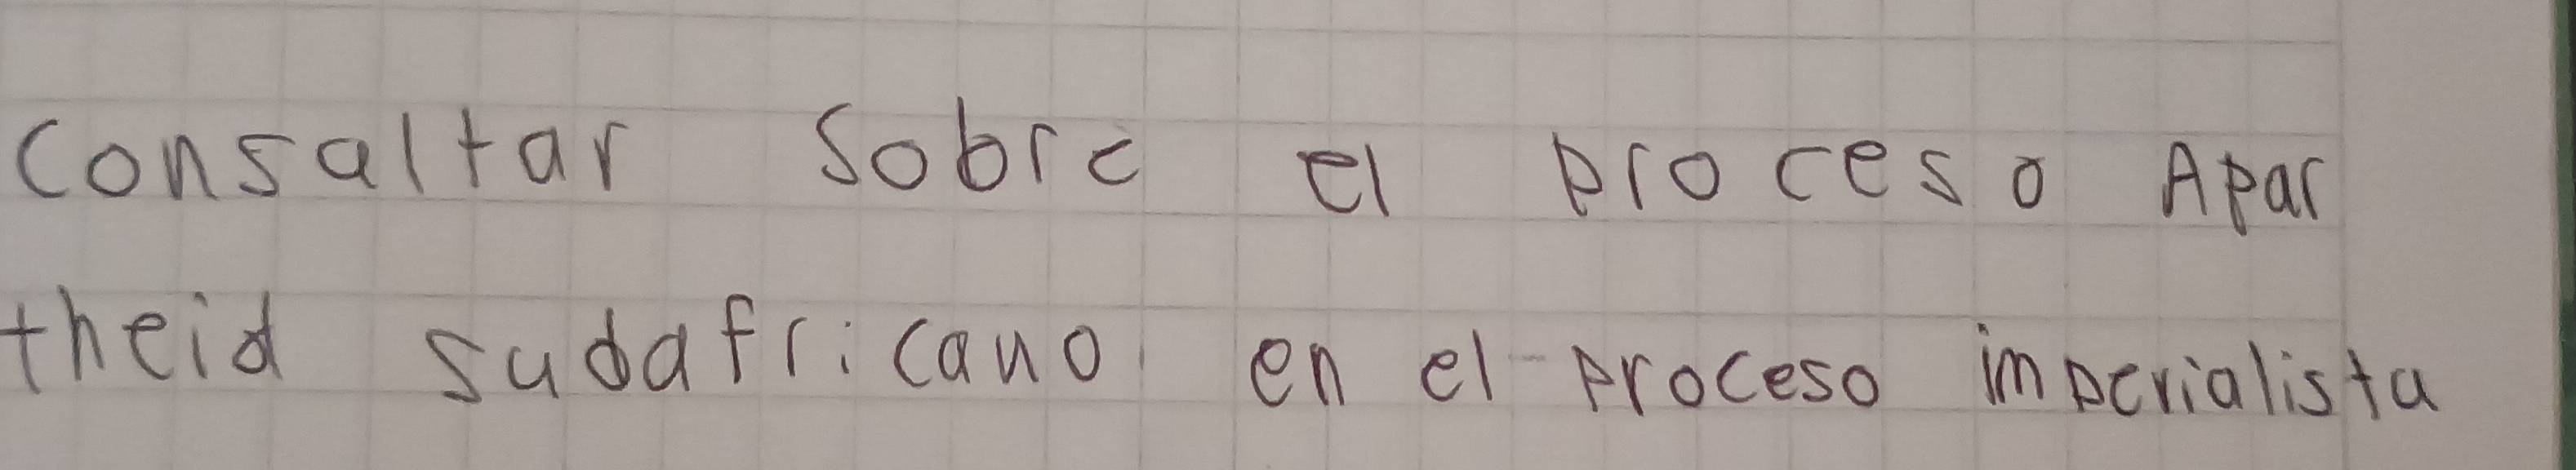 Consaltar sobre el proceso Apar
theid sudafricano en el proceso imperialista